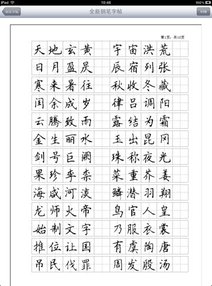 10:46
全能钢笔字帖
第1页，共10页
天地玄黄 宇宙洪荒
日月盈昃 辰宿列张
寒来暑往 秋收冬藏
闰余成岁 律吕调阳
云腾致雨 露结为霜
金生丽水 玉出昆冈
剑号巨阙 珠称夜光
果珍李柰 菜重芥姜
海咸河淡 鳞潜羽翔
龙师火帝 鸟官人皇
始制文字 乃服衣裳
推位让国 有虞陶唐
吊民伐罪 周发殷汤